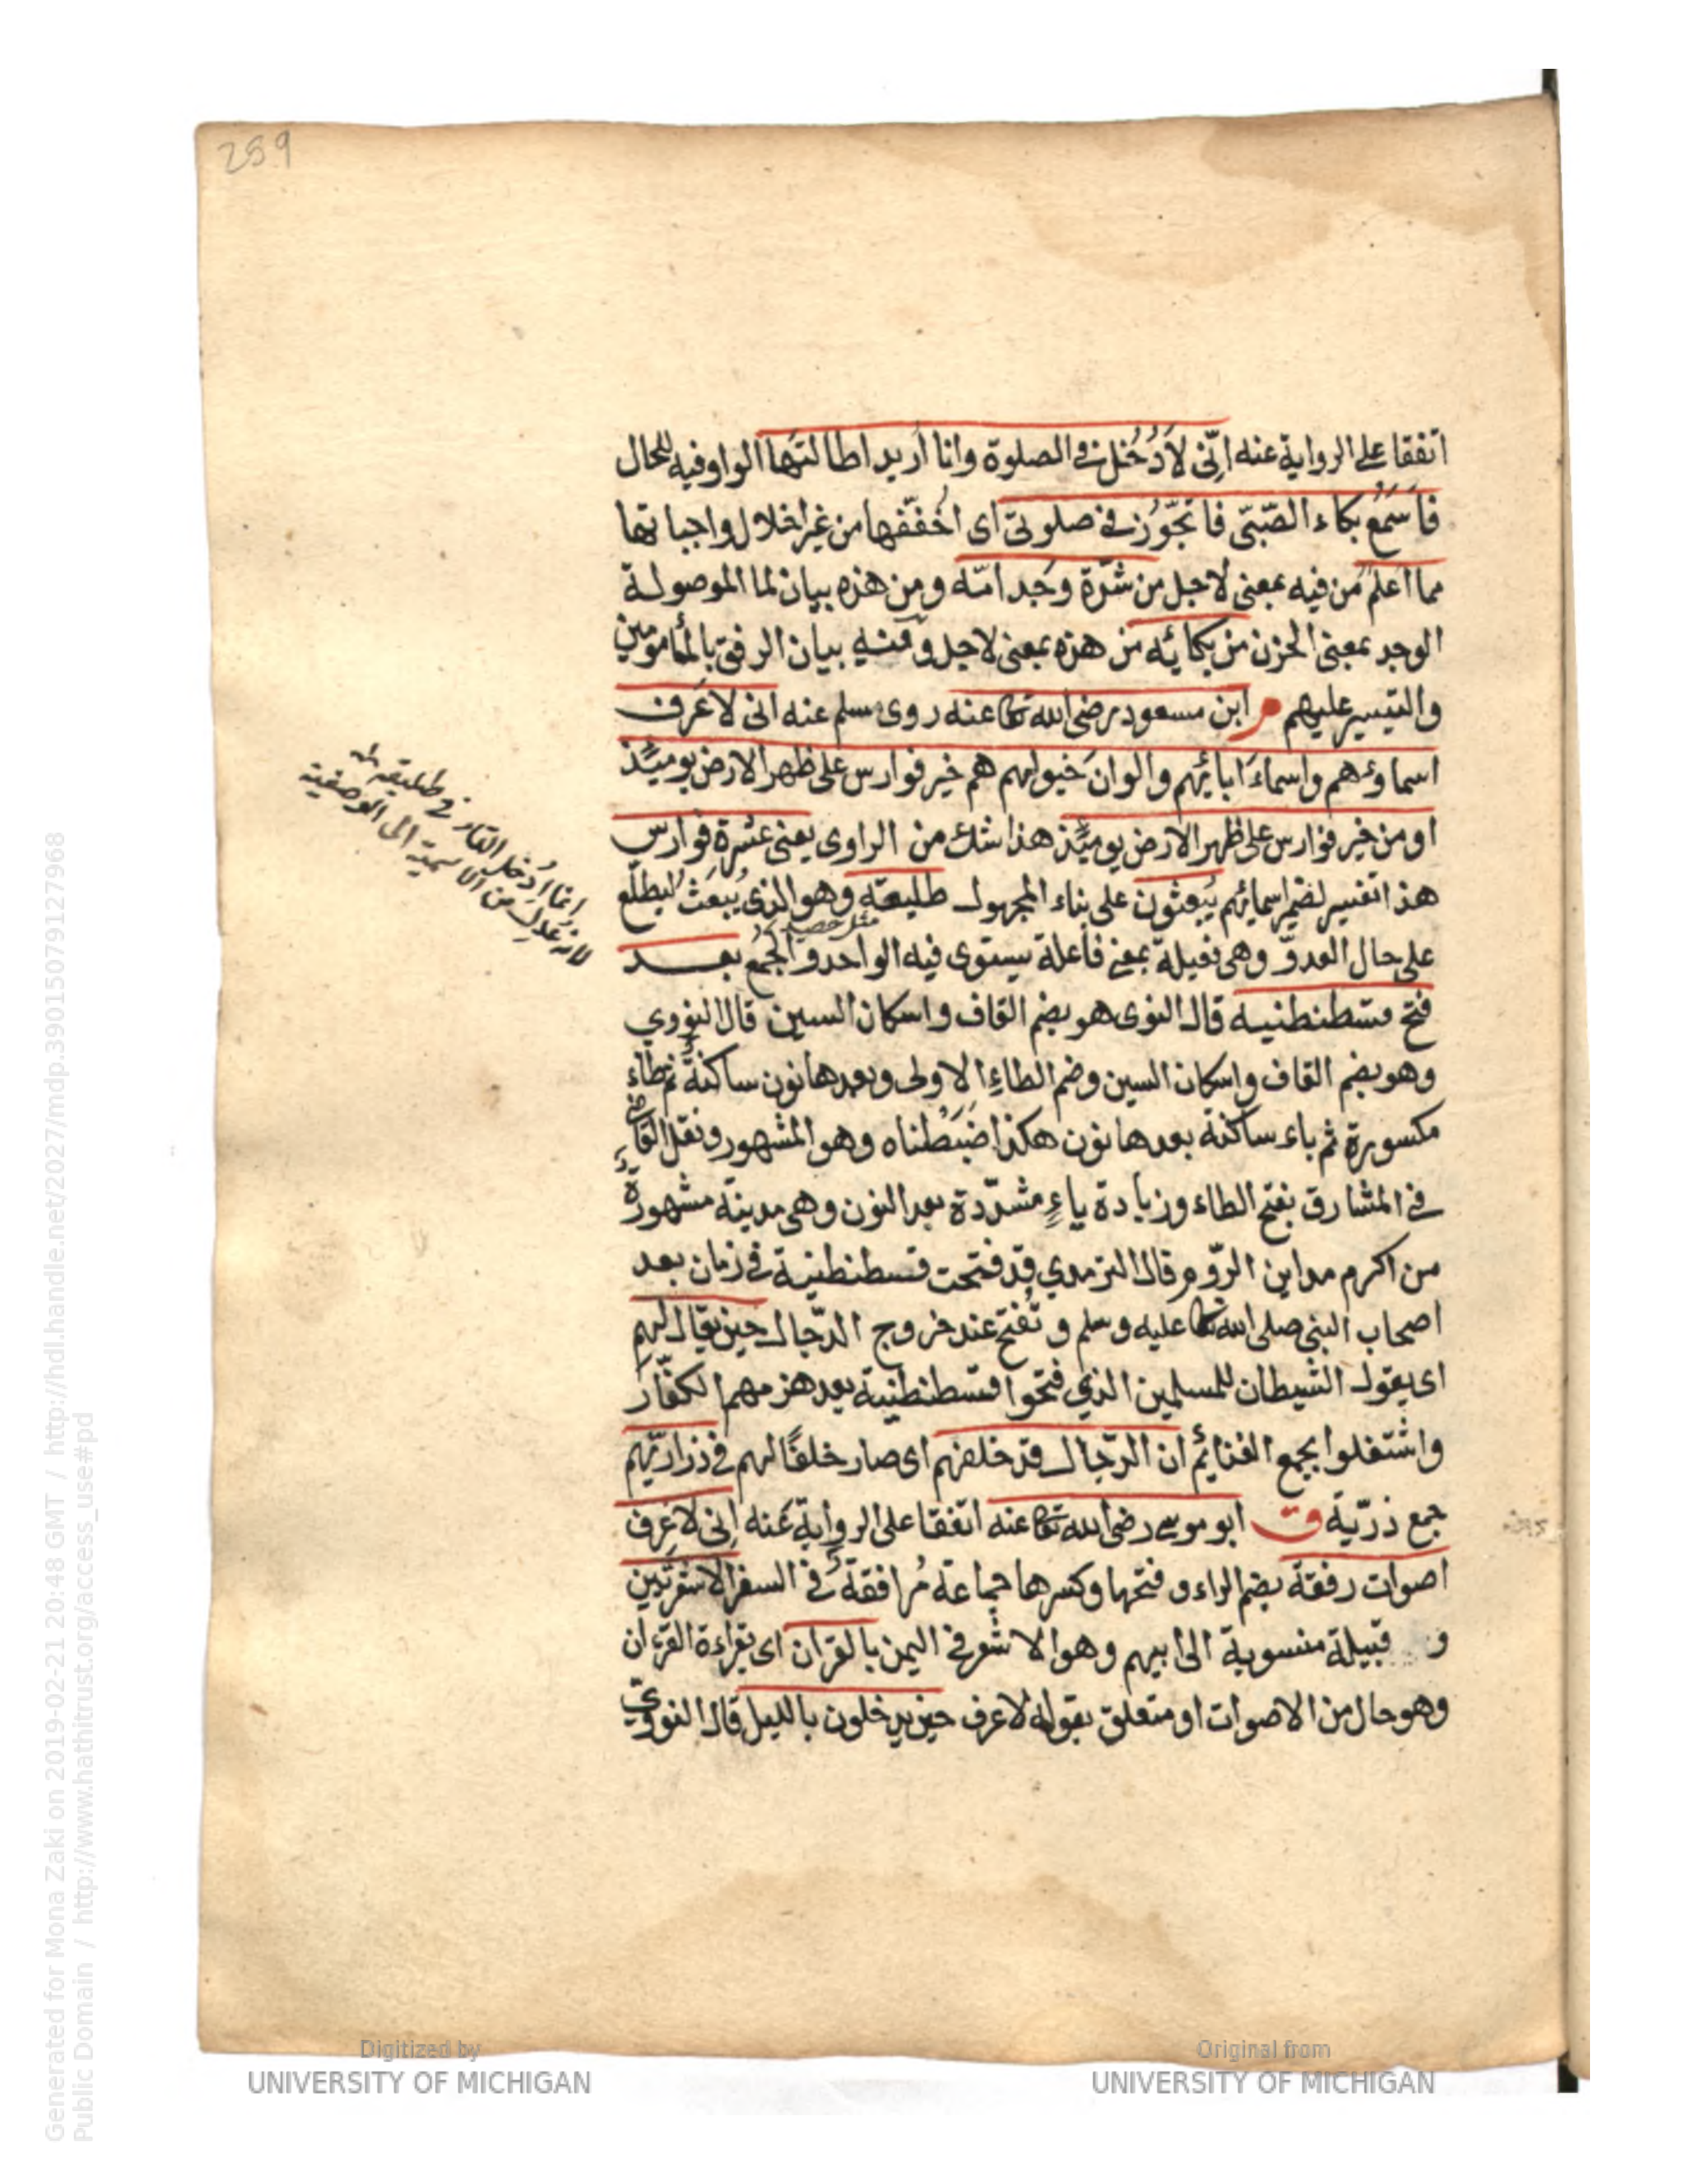 259
اتفقا على الرواية عنه اِنّى لاَدْخُل فى الصلوة وانا اُريد اطالتَها الواو فيه للحال
فاَسَمَعُ بكاء الصّبىّ فاتجّوزُ فى صلوتىِ اى اخففّها من غير اخلال واجباتها
مما اعلم من فيه بمعنى لاجل من شدّة وَجد امّه ومن هذه بيان لما الموصولة
الوجد بمعنى الحزن من بكائه من هذه بمعنى لاجل وفيه بيان الرفق بالمأمومين
والتيسير عليهم م ابن مسعود رضى الله تعا عنه روى مسلم عنه انى لاعَرف
اسماوءهم واسماءَ ابائهم والوان خيولهم هم خير فوارس على ظهر الارض يومئذ
او من خير فوارس على ظهر الارض يومئذ هذا شك من الراوى يعنى عشرة فوارس
هذا تفسير لضمير اسمائهم يُبعثون على بناء المجهول طليعة وهو الذى يُبعَث ليطلع
مثل خصيم
على حال العدوّ وهى فعيلة بمعنى فاعلة يستوى فيه الواحد والجمعُ بعد
فتح قسطنطنية قال النوى هو بضم القاف واسكان السين قال النووي
وهو بضم القاف واسكان السين وضم الطاءِ الاولى وبعدها نون ساكنةً ثم طاءٍ
مكسورة ثم ياء ساكنة بعدها نون هكذا ضبَطناه وهو المشهور ونقل القاضى
فى المشارق بفتح الطاء وزيادة ياءٍ مشدّدة بعد النون وهى مدينة مشهورةٌ
من اكرم مداين الرّوم قال الترمدي قد فتحت قسطنطنية فى زمان بعد
اصحاب النبى صلى الله تعا عليه وسلم وتُفتح عند خروج الدّجال حين يقال لهم
اى يقول الشيطان للمسلمين الذي فتحوا قسطنطنية بعد هزمهم الكفّار
واشتغلوا بجمع الغنائم ان الدّجال قد خلفهم اى صار خلفًا لهم فى ذراريّهم
جمع ذرّية ق ابو موسى رضى الله تعا عنه اتفقا على الرواية عَنه اِنى لاعرف
اصوات رفقة بضم الراء وفتحها وكسرها جماعة مُرافقة فى السفر الاشعريّين
و قبيلة منسوبة الى ابيهم وهو الاشعر فى اليمن بالقران اى بقراءة القرءان
وهو حال من الاصوات او متعلق بقوله لاعرف حين يدخلون بالليل قال النووىّ
انما اُدخل التاء فى طليعة
لانه عدل من الاسمية الى الوصفية
Digitized by
UNIVERSITY OF MICHIGAN
Original from
UNIVERSITY OF MICHIGAN
Generated for Mona Zaki on 2019-02-21 20:48 GMT / http://hdl.handle.net/2027/mdp.39015079127968
Public Domain / http://www.hathitrust.org/access_use#pd